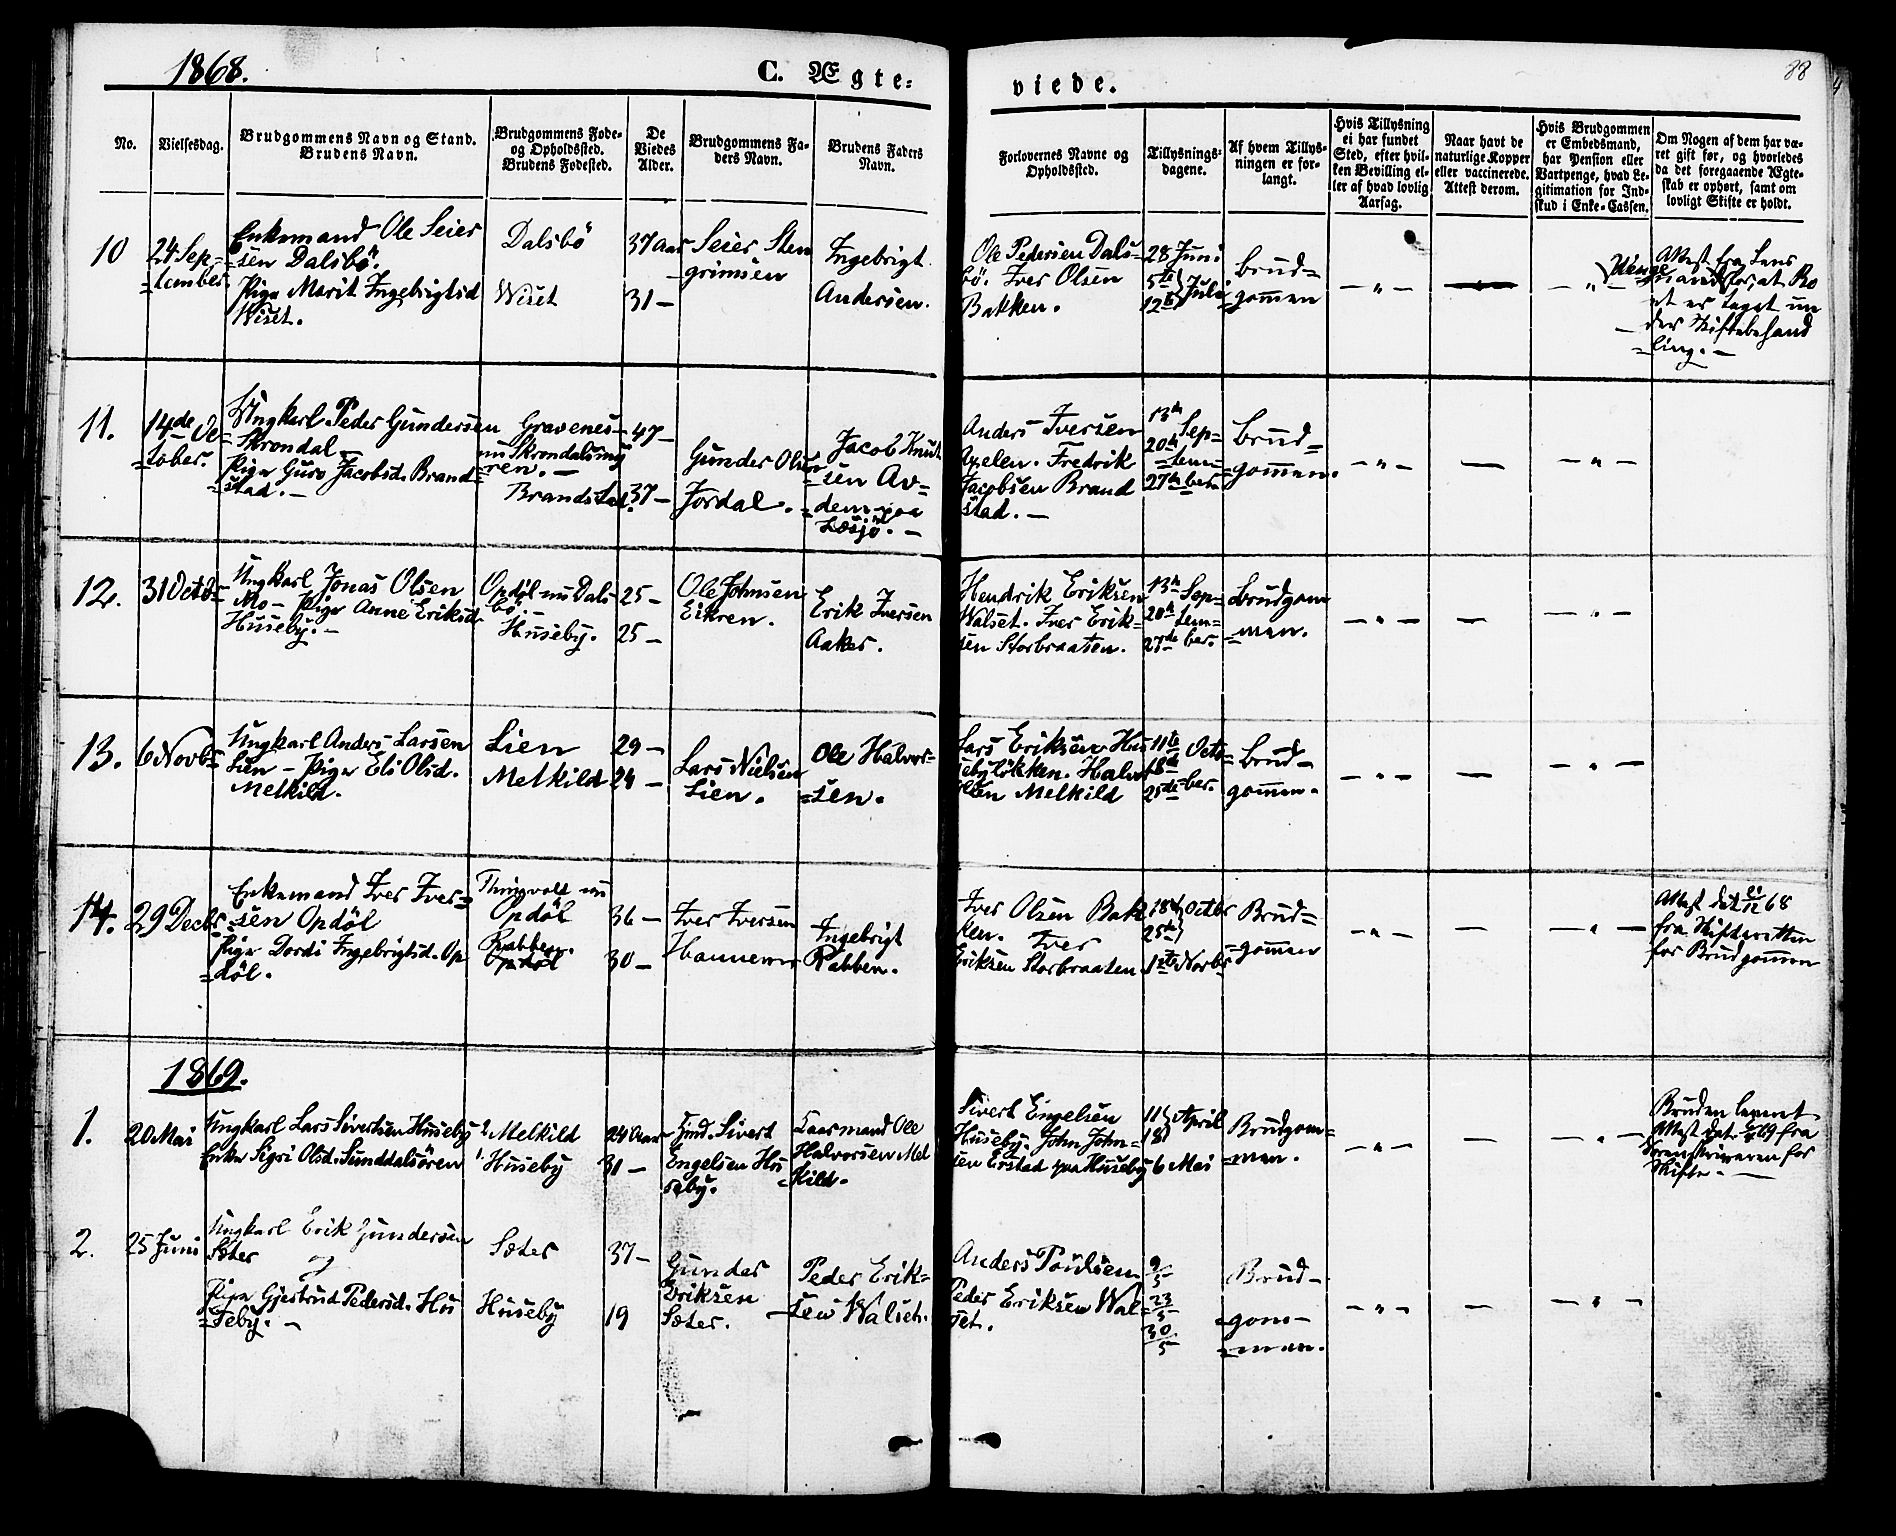 1868.
C. Ægte-
viede.
88
No.
Vielsesdag.
Brudgommens Navn og Stand.
Brudens Navn.
Brudgommens Føde-
og Opholdssted.
Brudens Fødested.
De
Viedes
Alder.
Brudgommens Fa-
ders Navn.
Brudens Faders
Navn.
Forlovernes Navne og
Opholdssted.
Tillysnings-
dagene.
Af hvem Tillys-
ningen er for-
langt.
Hvis Tillysning
ei har fundet
Sted, efter hvil-
ken Bevilling el-
ler af hvad lovlig
Aarsag.
Naar havt de
naturlige Kopper
eller vaccinerede.
Attest derom.
Hvis Brudgommen
er Embedsmand,
har Pension eller
Vartpenge, hvad Le-
gitimation for Ind-
skud i Enke-Cassen.
Om Nogen af dem har væ-
ret gift før, og hvorledes
da det foregaaende Ægte-
skab er ophørt, samt om
lovligt Skifte er holdt.
10
24 Sep-
tember.
Enkemand Ole Seier
sen Dalsbö.
Pige Marit Ingebrigtsd
Wiset.
Dalsbö
Wiset
37 Aar
31 –
Seier Sten
grimsen
Ingebrigt
Andersen.
Ole Pedersen Dals-
bö. Iver Olsen
Bakken.
28 Juni
5te
12te Juli
Brud=
gommen
– " –
–
– " –
Attest fra Lens
mand for, at Bo
et er taget un
der Skiftebehand
ling. –
11.
14de Oc-
tober.
Ungkarl Peder Gundersen
Skrondal –
Pige Guro Jacobsd. Brand
stad. –
Gravenes –
nu Skrondalsmy
ren. –
Brandstad.
47 –
37 –
Gunder Olsen
Jordal.
Jacob Knud
sen Av-
dem paa
Læsjö. –
Anders Iversen
Axelen. Fredrik
Jacobsen Brand
stad. –
13de Sep-
20de tem-
27de ber.
Brud=
gommen.
– " –
–
– " –
12.
31 Octbr
Ungkarl Jonas Olsen
Mo – Pige Anne Eriksd.
Huseby. –
Opdöl nu Dals
bö. –
Huseby.
25 –
25 –
Ole Johnsen
Eikren.
Erik Iversen
Aaker.
Hendrik Eriksen
Walset. Iver Erik-
sen Storbraaten.
13de Sep-
20de tem-
27de ber.
Brudgom
men.
– " –
–
– " –
13.
6 Novbr
Ungkarl Anders Larsen
Lien – Pige Eli Olsd.
Melkild.
Lien
Melkild
29 –
24 –
Lars Nielsen
Lien.
Ole Halvor-
sen.
Lars Eriksen Hus
sebylökken. Halvor
Olsen Melkild
11te Octo-
18de
25de ber.
Brud-
gommen.
– " –
–
– " –
14.
29 Decbr
Enkemand Iver Iver-
sen Opdöl
Pige Dordi Ingebrigtsd. Op
döl.
Thingvold nu
Opdöl
Rabben.
Opdöl
36 –
30 –
Iver Iversen
Hannem
Ingebrigt
Rabben.
Iver Olsen Bak
ken. Iver
Eriksen Storbraaten
18de Octbr
25de
1ste Novbr
Brud=
gommen
– " –
–
– " –
Attest dat. 21/12 68
fra Skifteretten
for Brudgommen
1869.
1.
20 Mai
Ungkarl Lars Sivertsen Huseby
Enke Sigri Olsd. Sunddalsören
2 Melkild
1 Huseby
24 Aar
31 –
Sivert
Engelsen Hu
seby.
Laarmand Ole
Halvorsen Mel
kild.
Sivert Engelsen
Huseby. John John-
sen Erstad paa Huseby
11 April
18
6 Mai
Brudgom=
men.
– " –
–
– " –
Bruden leveret
Attest dat. 69 fra
Sorenskriveren for
Skifte. –
2.
25 Juni
Ungkarl Erik Gundersen
Sæter
og
Pige Gjertrud Pedersd. Hu
seby. –
Sæter
Huseby
37 –
19
Gunder
Eriksen
Sæter.
Peder Erik-
sen Walset.
Anders Poulsen
Peder Eriksen Wal
set.
9/5
23/5
30/5
Brud-
gom-
men.
– " –
–
– " –